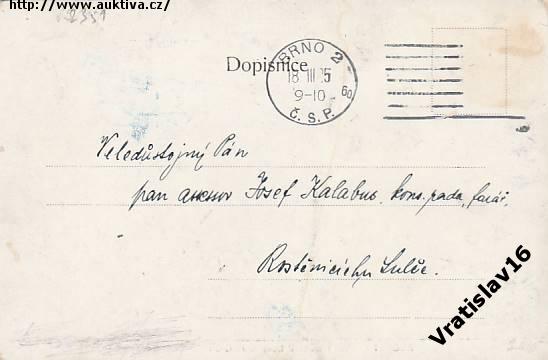 http://www.auktiva.cz/
2351
Dopisnice
BRNO 2
18 III 35
9-10
6g
Č.S.P.
Veledůstojný Pán
pan Josef Kalabus, kons. rada, farář,
Rostěnicích u Lulče.
Vratislav16